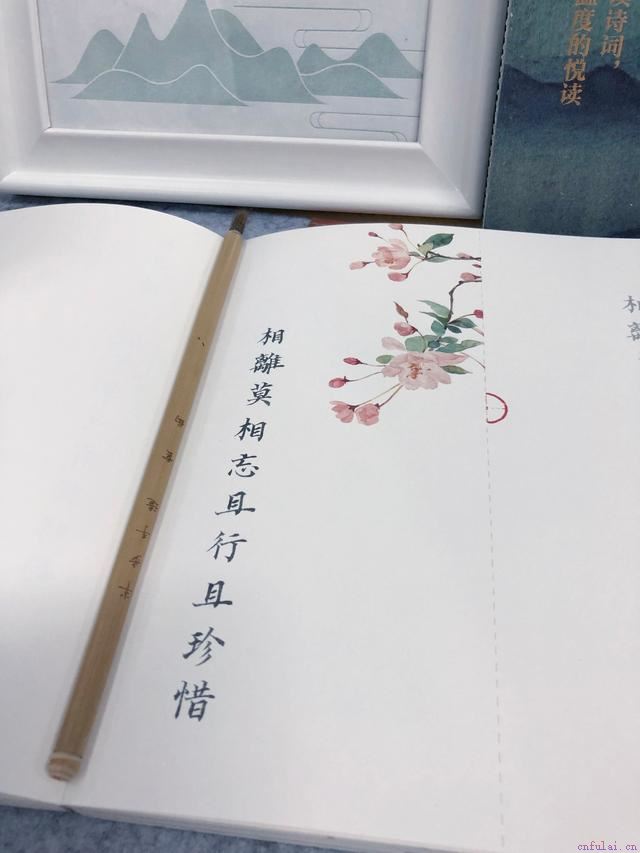 诗词，
温度的悦读
相離莫相忘且行且珍惜
cnfulai.cn